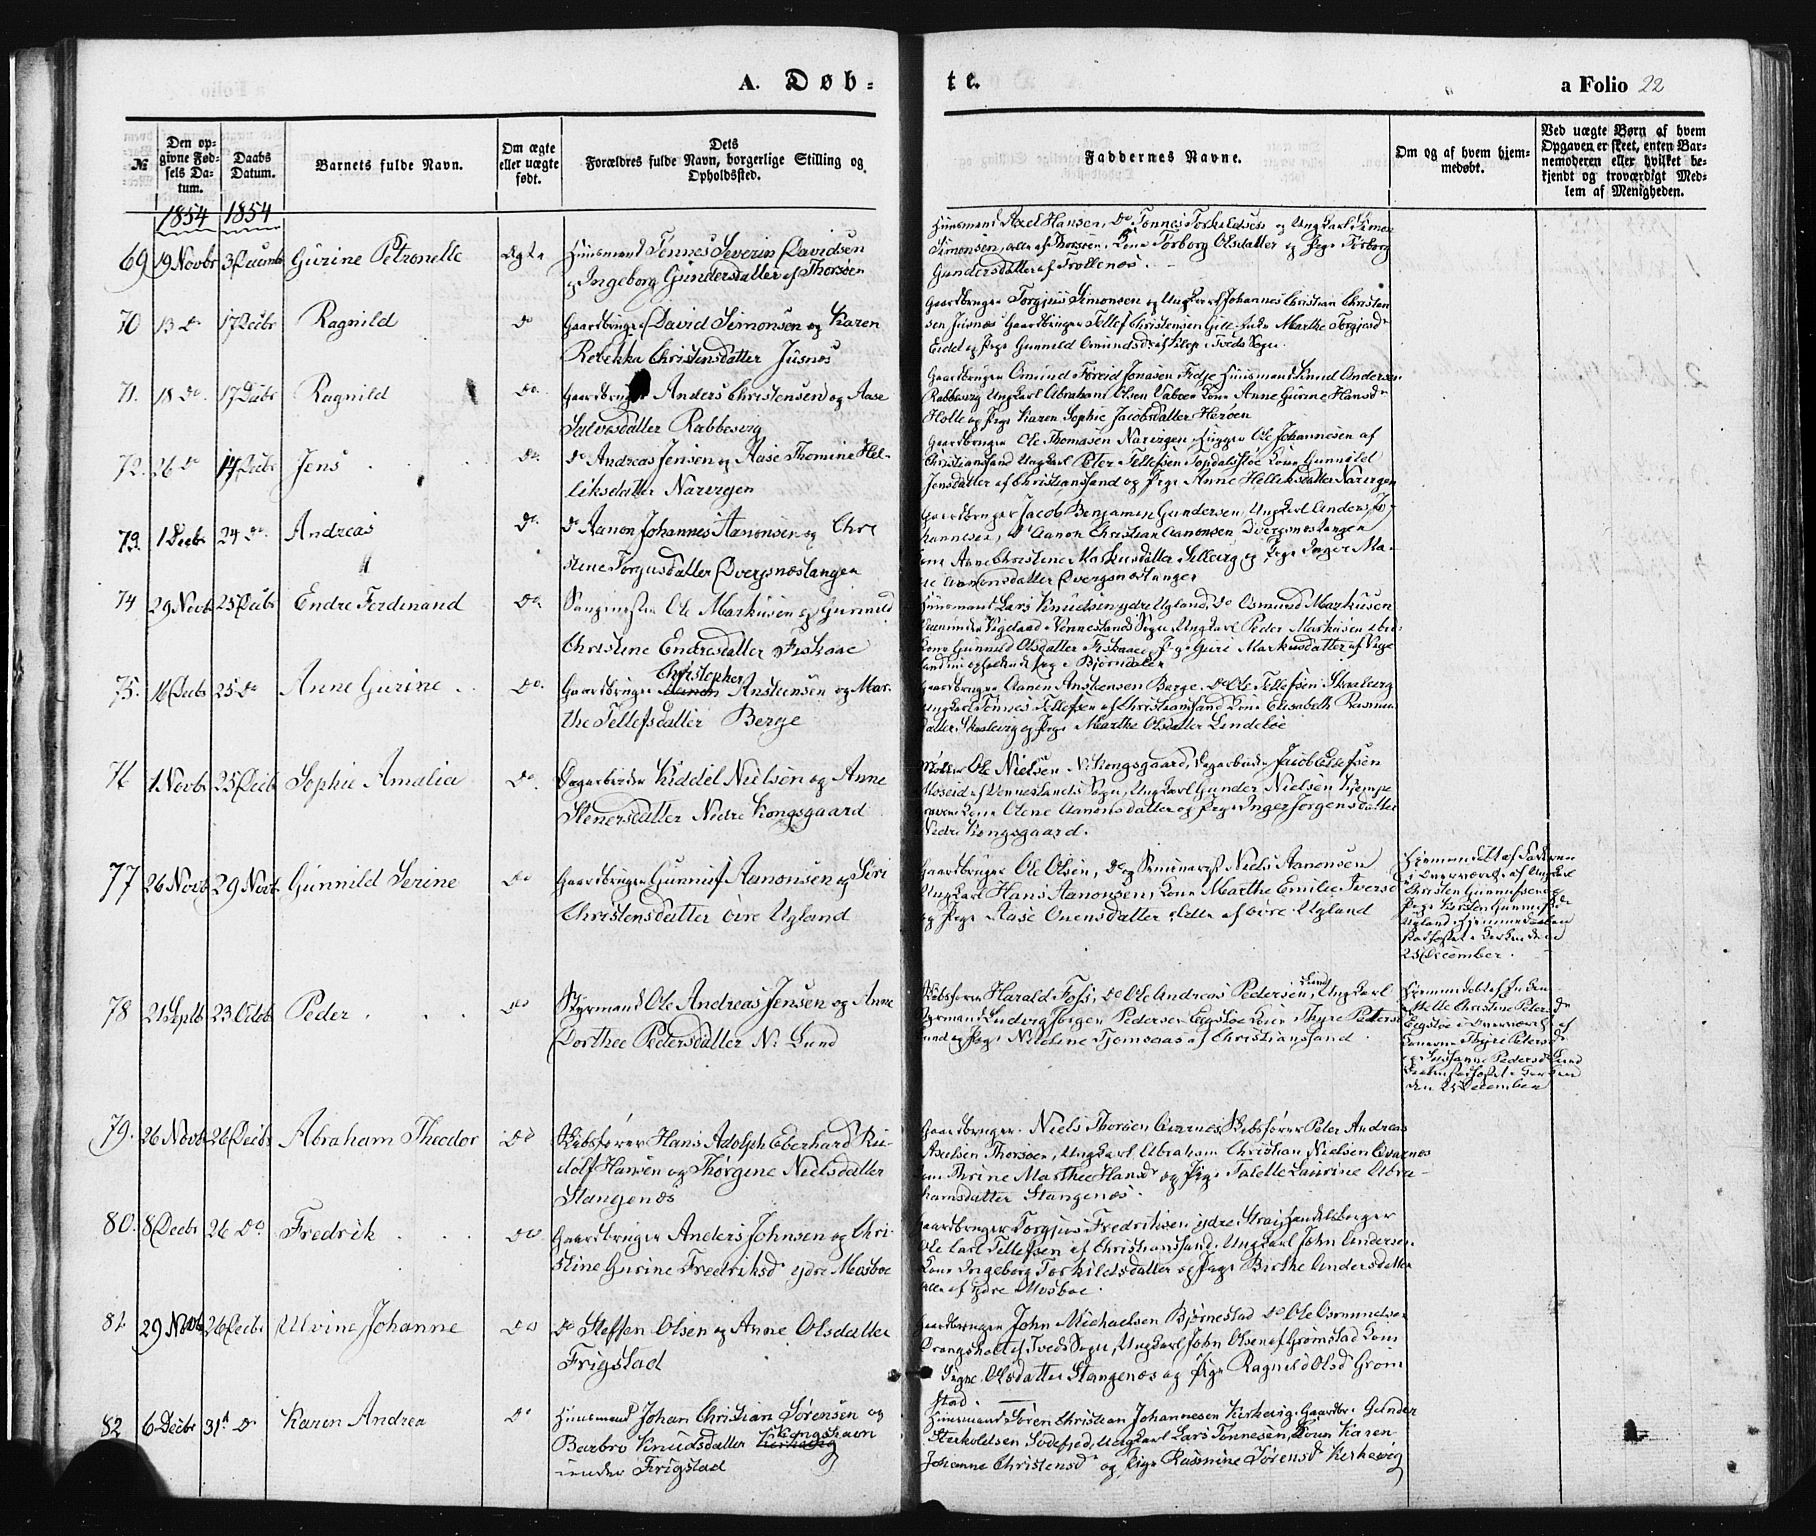 A. Døb-
te.
a Folio 22
№
Den op-
givne Fød-
sels Da-
tum.
Daabs
Datum.
Barnets fulde Navn.
Om ægte
eller uægte
født.
Dets
Forældres fulde Navn, borgerlige Stilling og
Opholdssted.
Faddernes Navne.
Om og af hvem hjem-
medøbt.
Ved uægte Børn af hvem
Opgaven er skeet, enten Bar-
nemoderen eller hvilket be-
kjendt og troværdigt Med-
lem af Menigheden.
1854 1854
69 19 Novbr 3 Decembr Gurine Petronelle Ægte
Huusmand Tønnes Severin Davidsen
og Ingeborg Gundersdatter af Thorsøen
Huusmand Axel Hansen, Do Tønnes Torkeldsen og Ungkarl Simon
Simonsen, alle af Thorsøen, Kone Torborg Olsdatter og Pige Torborg
Gundersdatter af Trollenæs.
70 13 Do 17 Decbr Ragnild Do
Gaardbruger David Simonsen og Karen
Rebekka Christensdatter Justnæs
Gaardbruger Torgjus Simonsen og Ungkarl Johannes Christian Christen
sen Justnæs Gaardbruger Tellef Christensen Gill Marthe Torgjusd
Eidet og Pige Gunnild Omundsd af i Tveds Sogn.
71. 18 Do. 17 Decbr Ragnild Do.
Gaardbruger Anders Christensen og Aase
Salvesdatter Rabbesvig
Gaardbruger Omund Toreid Jonasen Fidje Huusmand Knud Andersen
Rabbesvig Ungkarl Abraham Olsen Kone Anne Gurine Hansd
Holte og Pige Karen Sophie Jacobsdatter Herøen
72. 26 Do 17 Decbr Jens Do.
Do Andreas Jensen og Aase Thomine Hel-
liksdatter Narvigen
Gaardbruger Ole Thomasen Narvigen Ole Johannesen af
Christiansand Ungkarl Peter Tellefsen Kone Gunnild
Jensdatter af Christianssand og Pige Anne Helliksdatter Narvigen
73. 1 Decbr 24 Do. Andreas Do.
Do Aanon Johannes Aanonsen og Chri
stine Torgusdatter Dvergsnæstangen
Gaardbruger Jacob Benjamin Gundersen, Ungkarl Anders Jo-
hannesen, Do Aanon Christian Aanonsen Dvergsnæstangen
Anne Christine Markusdatter og Pige Inger Ma-
rie Aanonsdatter Dvergsnæstangen
74 29 Novbr 25 Decbr Endre Ferdinand Do.
Ole Markusen og Gunnild
Christine Endresdatter Fiskaae
Huusmand Lars Knudsen ydre Ugland, Do Osmund Markusen
Vigeland Vennesland Sogn, Ungkarl Peder Markusen
Kone Gunnild Olsdatter Fiskaae, Pige Guri Markusdatter af Vige
land
75. 16 Decbr 25 Do Anne Gurine Do.
Christopher
Gaardbruger Anstensen og Mar-
the Tellefsdatter Berge
Gaardbruger Aanen Anstensen Berge. Do Ole Tellefsen Skraaevig
Ungkarl Tønnes Tellefsen af Christianssand Kone Elisabeth Rasmus
datter, Skraaevig og Pige Marthe Olsdatter Lindeløe
76 1 Novbr 25 Decbr Sophie Amalia Do
Dagarbeider Kiddel Nielsen og Anne
Stenersdatter Nedre Kongsgaard
Ole Nielsen N. Kongsgaard, Dagarbeider Jacob Ellefsen
Moseid af Venneslands Sogn, Ungkarl Gunder Nielsen
Kone Olene Aanonsdatter og Pige Inger Jørgensdatter
Nedre Kongsgaard.
77 26 Novb 29 Novb Gunnild Serine Do
Gaardbruger Gunnuf Aanonsen og Siri
Christensdatter øvre Ugland
Gaardbruger Ole Olsen, Do og Seminarist Niels Aanonsen
Ungkarl Hans Aanonsen, Kone Marthe Emilie Iversd
og Pige Aase Onensdatter alle af øvre Ugland
Hjemmedøbt af Faderen
i Overværelse af Ungkarl
Christen Gunnufsen og
Pige Kirsten Gunnufsd
Ugland Hjemmedaaben
Stadfæstet i Kirken den
25 December.
78 21 Septb 23 Octob Peder Do
Styrmand Ole Andreas Jensen og Anne
Dorthee Pedersdatter N. Lund
Skibsfører Harald Foss, Do Ole Andreas Pedersen Lund, Ungkarl
Styrmand Ludvig Jørgen Pedersen Eegstøe Kone Thyre Petersd
Lund og Pige Nilsine Tjomsaas af Christianssand
Hjemmedøbt af
Mette Christine Petersd
Eegstøe i Overværelse af
Konerne Thyre Petersd
og Susanne Pedersd Lund
Daaben stadfæstet i Kirken
den 25 December
79. 26 Novbr 26 Decbr Abraham Theodor Do
Skibsfører Hans Adolph Eberhard Ru-
dolf Hansen og Thorgine Nielsdatter
Stangenæs
Gaardbruger Niels Thorsen Qvarnes, Skibsfører Peter Andreas
Axelsen Thorsøen, Ungkarl Abraham Christian Nielsen Qvarnes
Kone Thrine Marthe Hansd og Pige Talette Laurine Abra-
hamsdatter Stangenæs.
80. 8 Decbr 26 Do Fredrik Do
Gaardbruger Anders Johnsen og Chri-
stine Gurine Fredriksd ydre Mosbøe
Gaardbruger Torgjus Fredriksen ydre Straj, Handelsborger
Ole Carl Tellefsen af Christianssand, Ungkarl John Andersen
Kone Ingeborg Torkildsdatter og Pige Birthe Andersdatter
alle af ydre Mosbøe.
81. 29 Novb 26 Decbr Alvine Johanne Do
Do Steffen Olsen og Anne Olsdatter
Frigstad
Gaardbruger John Michaelsen Bjørnestad Do Ole Osmundsen
Drangsholt af Tveds Sogn, Ungkarl John Olsen af Grømstad Kone
Signe Olsdatter Stangenæs og Pige Ragnild Olsd Grøm
stad.
82 6 Decbr 31t Do Karen Andrea Do
Huusmand Johan Christian Sørensen og
Barbro Knudsdatter Kirkevig Kongshavn
under Frigstad
Huusmand Søren Christian Johannesen Kirkevig, Gaardbr. Gunder
Sterkoldsen Sodefjed, Ungkarl Lars Tønnesen, Kone Karen
Johanne Christensd og Pige Rasmine Sørensd Kirkevig